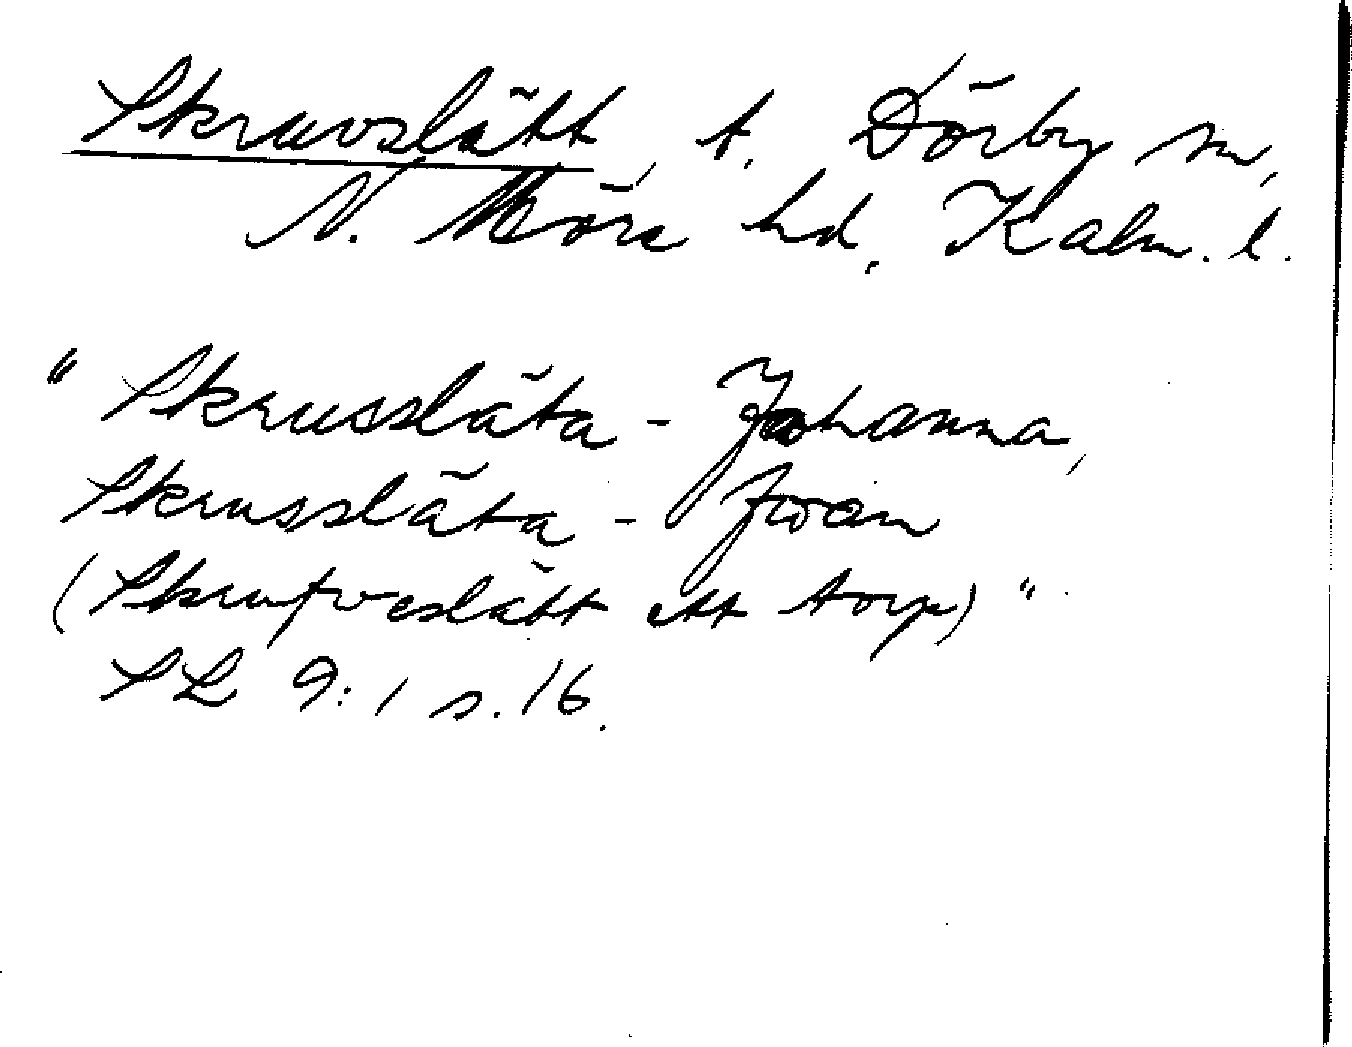 Skruvslätt, t. Dörby sn,
N. Möre hd, Kalm. l.
"Skrussläta - Johanna,
Skrussläta - Jwan
(Skrufveslätt ett torp)"
SL 9:1 s. 16.